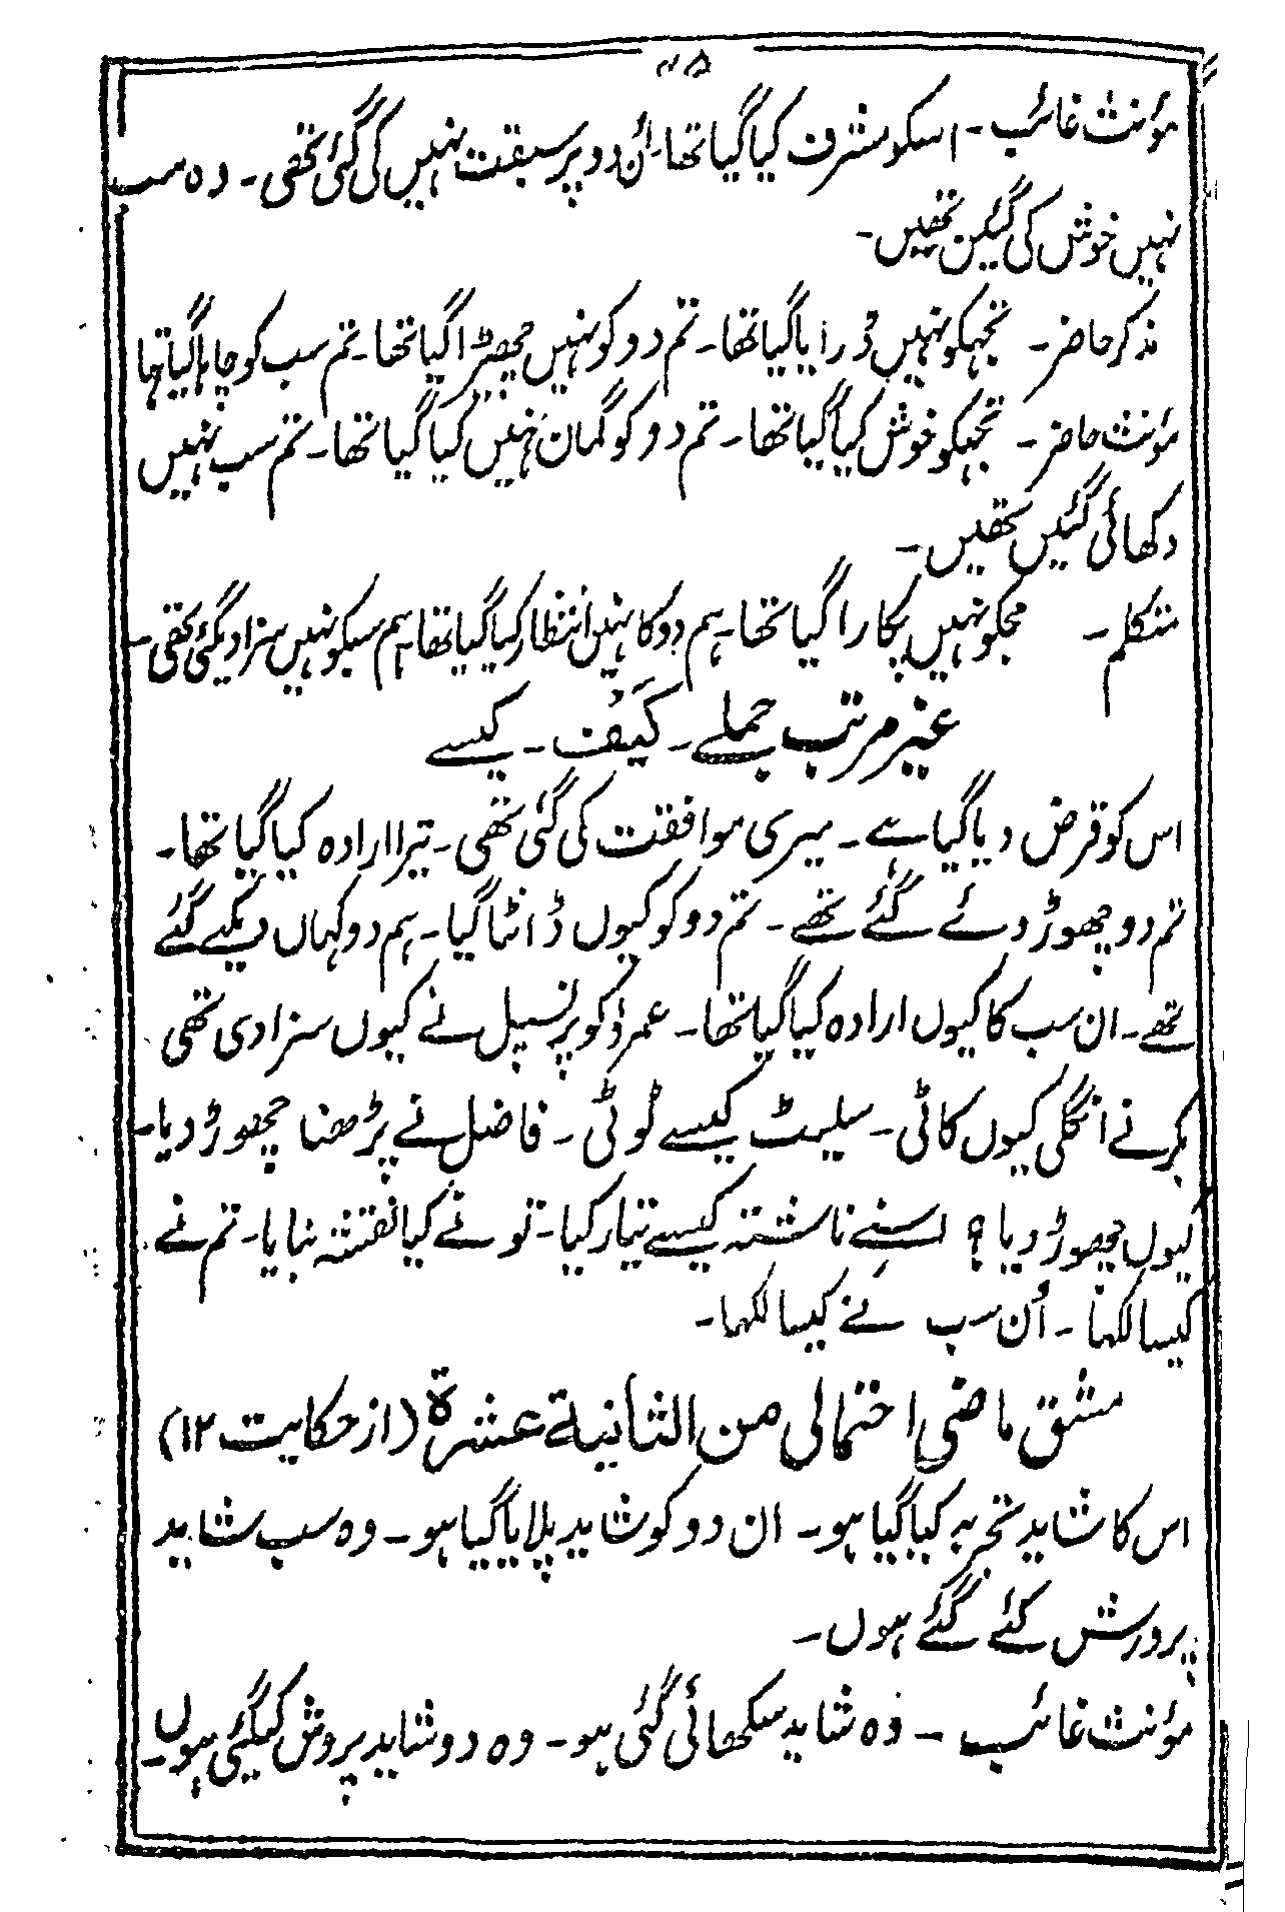 ۴۵
مؤنث غائب۔ اسکو مشرف کیا گیا تھا۔ اُن دو پر سبقت نہیں کی گئی تھی۔ وہ سب
نہیں خوش کی گیئں تھیں۔
مذکر حاضر۔ تجہکو نہیں ڈرایا گیا تھا۔ تم دو کو نہیں چھیڑا گیا تھا۔ تم سب کو چاہا گیا تہا
مؤنث حاضر۔ تجہکو خوش کیا گیا تھا۔ تم دو کو گمان نہیں کیا گیا تھا۔ تم سب نہیں
دکھائی گئیں تھیں۔
متکلم۔ مجکو نہیں پکارا گیا تھا۔ ہم دو کا نہیں انتظار کیا گیا تھا۔ ہم سبکو نہیں سزا دیگئی تھی۔
غیر مرتب جملے۔ کَیْفَ۔ کیسے
اس کو قرض دیا گیا ہے۔ میری موافقت کی گئی تھی۔ تیرا ارادہ کیا گیا تھا۔
تم دو چھوڑ دئے گئے تھے۔ تم دو کو کیوں ڈانٹا گیا۔ ہم دو کہاں دیکہے گئے
تھے۔ ان سب کا کیوں ارادہ کیا گیا تھا۔ عمرؤ کو پرنسپل نے کیوں سزا دی تھی
بکر نے انگلی کیوں کاٹی۔ سلیٹ کیسے ٹوٹی۔ فاضل نے پڑھنا چھوڑ دیا۔
کیوں چھوڑ دیا؟ اسنے ناشتہ کیسے تیار کیا۔ تو نے کیا نقشہ بنایا۔ تم نے
کیسا لکہا۔ اُن سب نے کیسا لکہا۔
مشق ماضی احتمالی من الثانیة عشرة (از حکایت ۱۲)
اس کا شاید تجربہ کیا گیا ہو۔ ان دو کو شاید پلایا گیا ہو۔ وہ سب شاید
پرورش کئے گئے ہوں۔
مؤنث غائب۔ وہ شاید سکھائی گئی ہو۔ وہ دو شاید پروش کیگئی ہوں۔